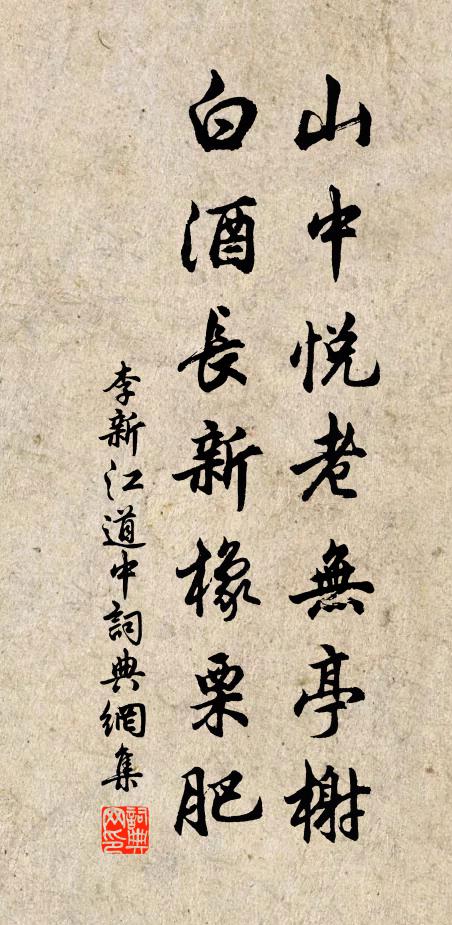 山中悅老無亭榭
白酒長新橡栗肥
李新江道中詞典網集
詞典网印